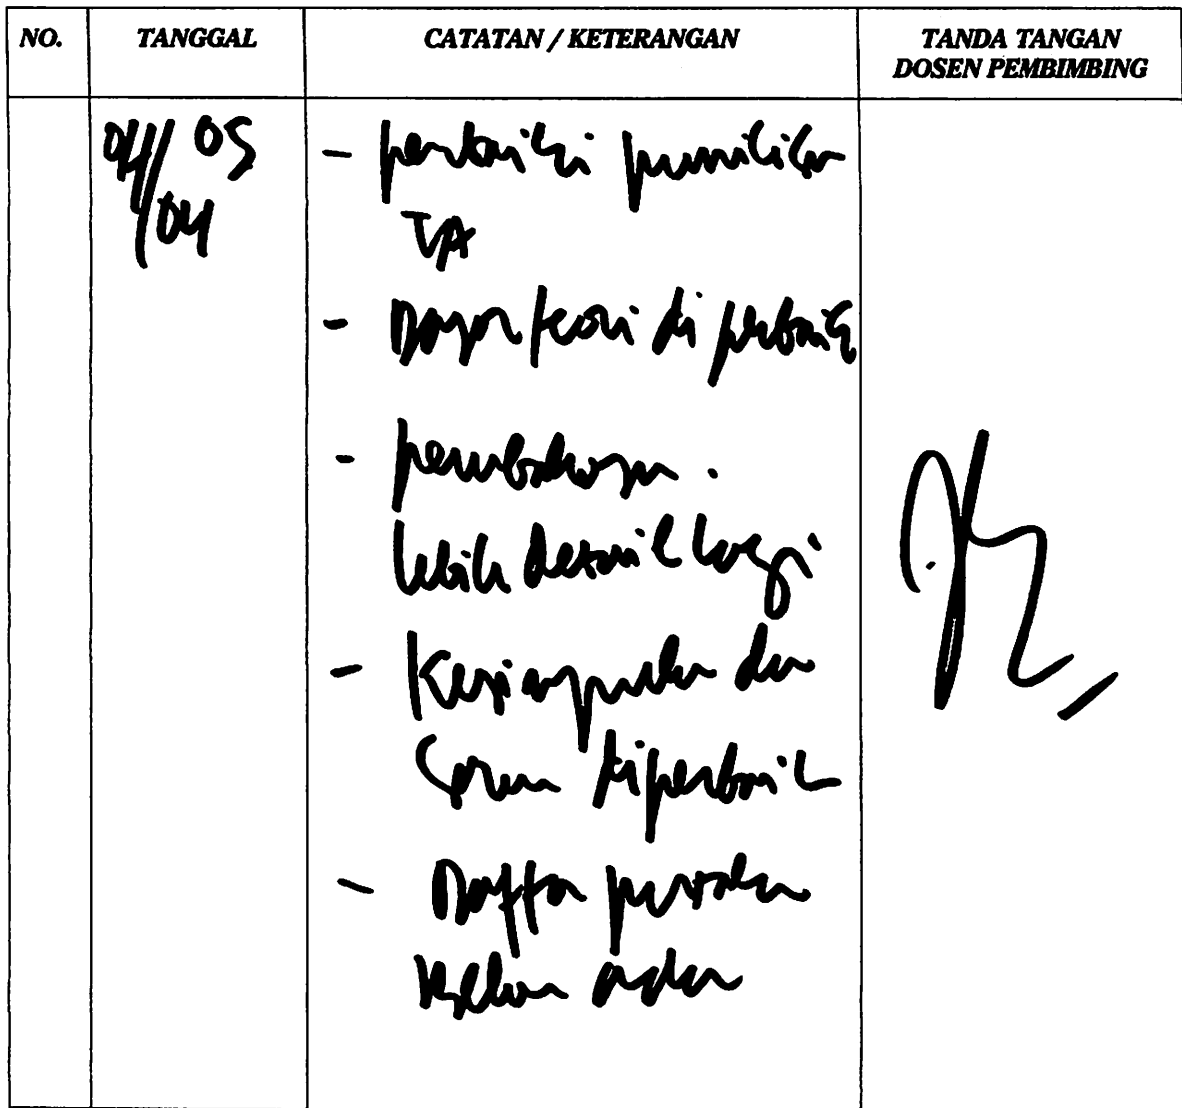 NO.
TANGGAL
CATATAN / KETERANGAN
TANDA TANGAN
DOSEN PEMBIMBING
04/04 05
- perbaiki penulisan
TA
- Dasar teori di perbaiki
- pembahasan.
lebih detail lagi
- Kesimpulan dan
Saran diperbaiki
- Daftar pustaka
belum ada